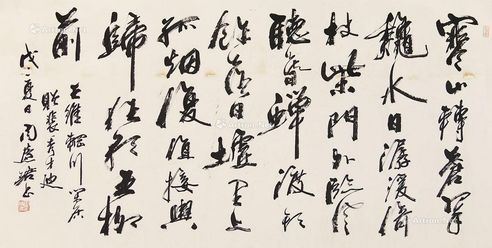 寒山轉蒼翠
龝水日潺湲倚
杖柴門外臨風
聽暮蟬渡頭
餘落日墟里上
孤烟復值接輿
醉狂歌五柳
前
王維輞川閑居
贈裴秀才迪
夏日周